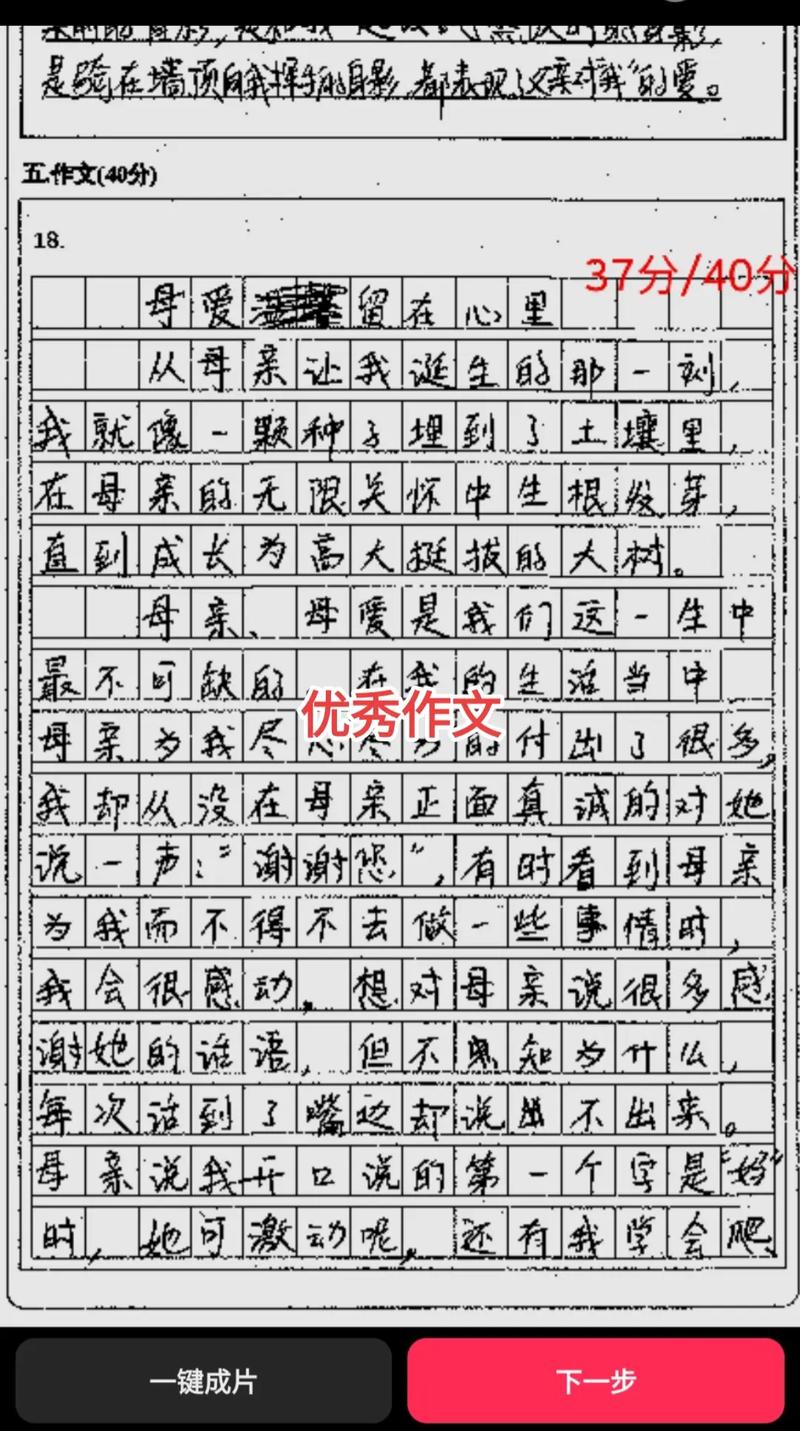 是骑在墙顶向我挥手的身影,都表现了父亲对"我"的爱。
五.作文(40分)
18.
37分/40分
母爱留在心里
从母亲让我诞生的那一刻,
我就像一颗种子埋到了土壤里,
在母亲的无限关怀中生根发芽,
直到成长为高大挺拔的大树。
母亲、母爱是我们这一生中
最不可缺的 在我的生活当中
优秀作文
母亲为我尽心尽力的付出了很多,
我却从没在母亲正面真诚的对她
说一声:“谢谢您”,有时看到母亲
为我而不得不去做一些事情时,
我会很感动,想对母亲说很多感
谢她的话语,但不知为什么,
每次话到了嘴边却说出不出来。
母亲说我开口说的第一个字是“妈”
时,她可激动呢,还有我学会爬、
一键成片
下一步